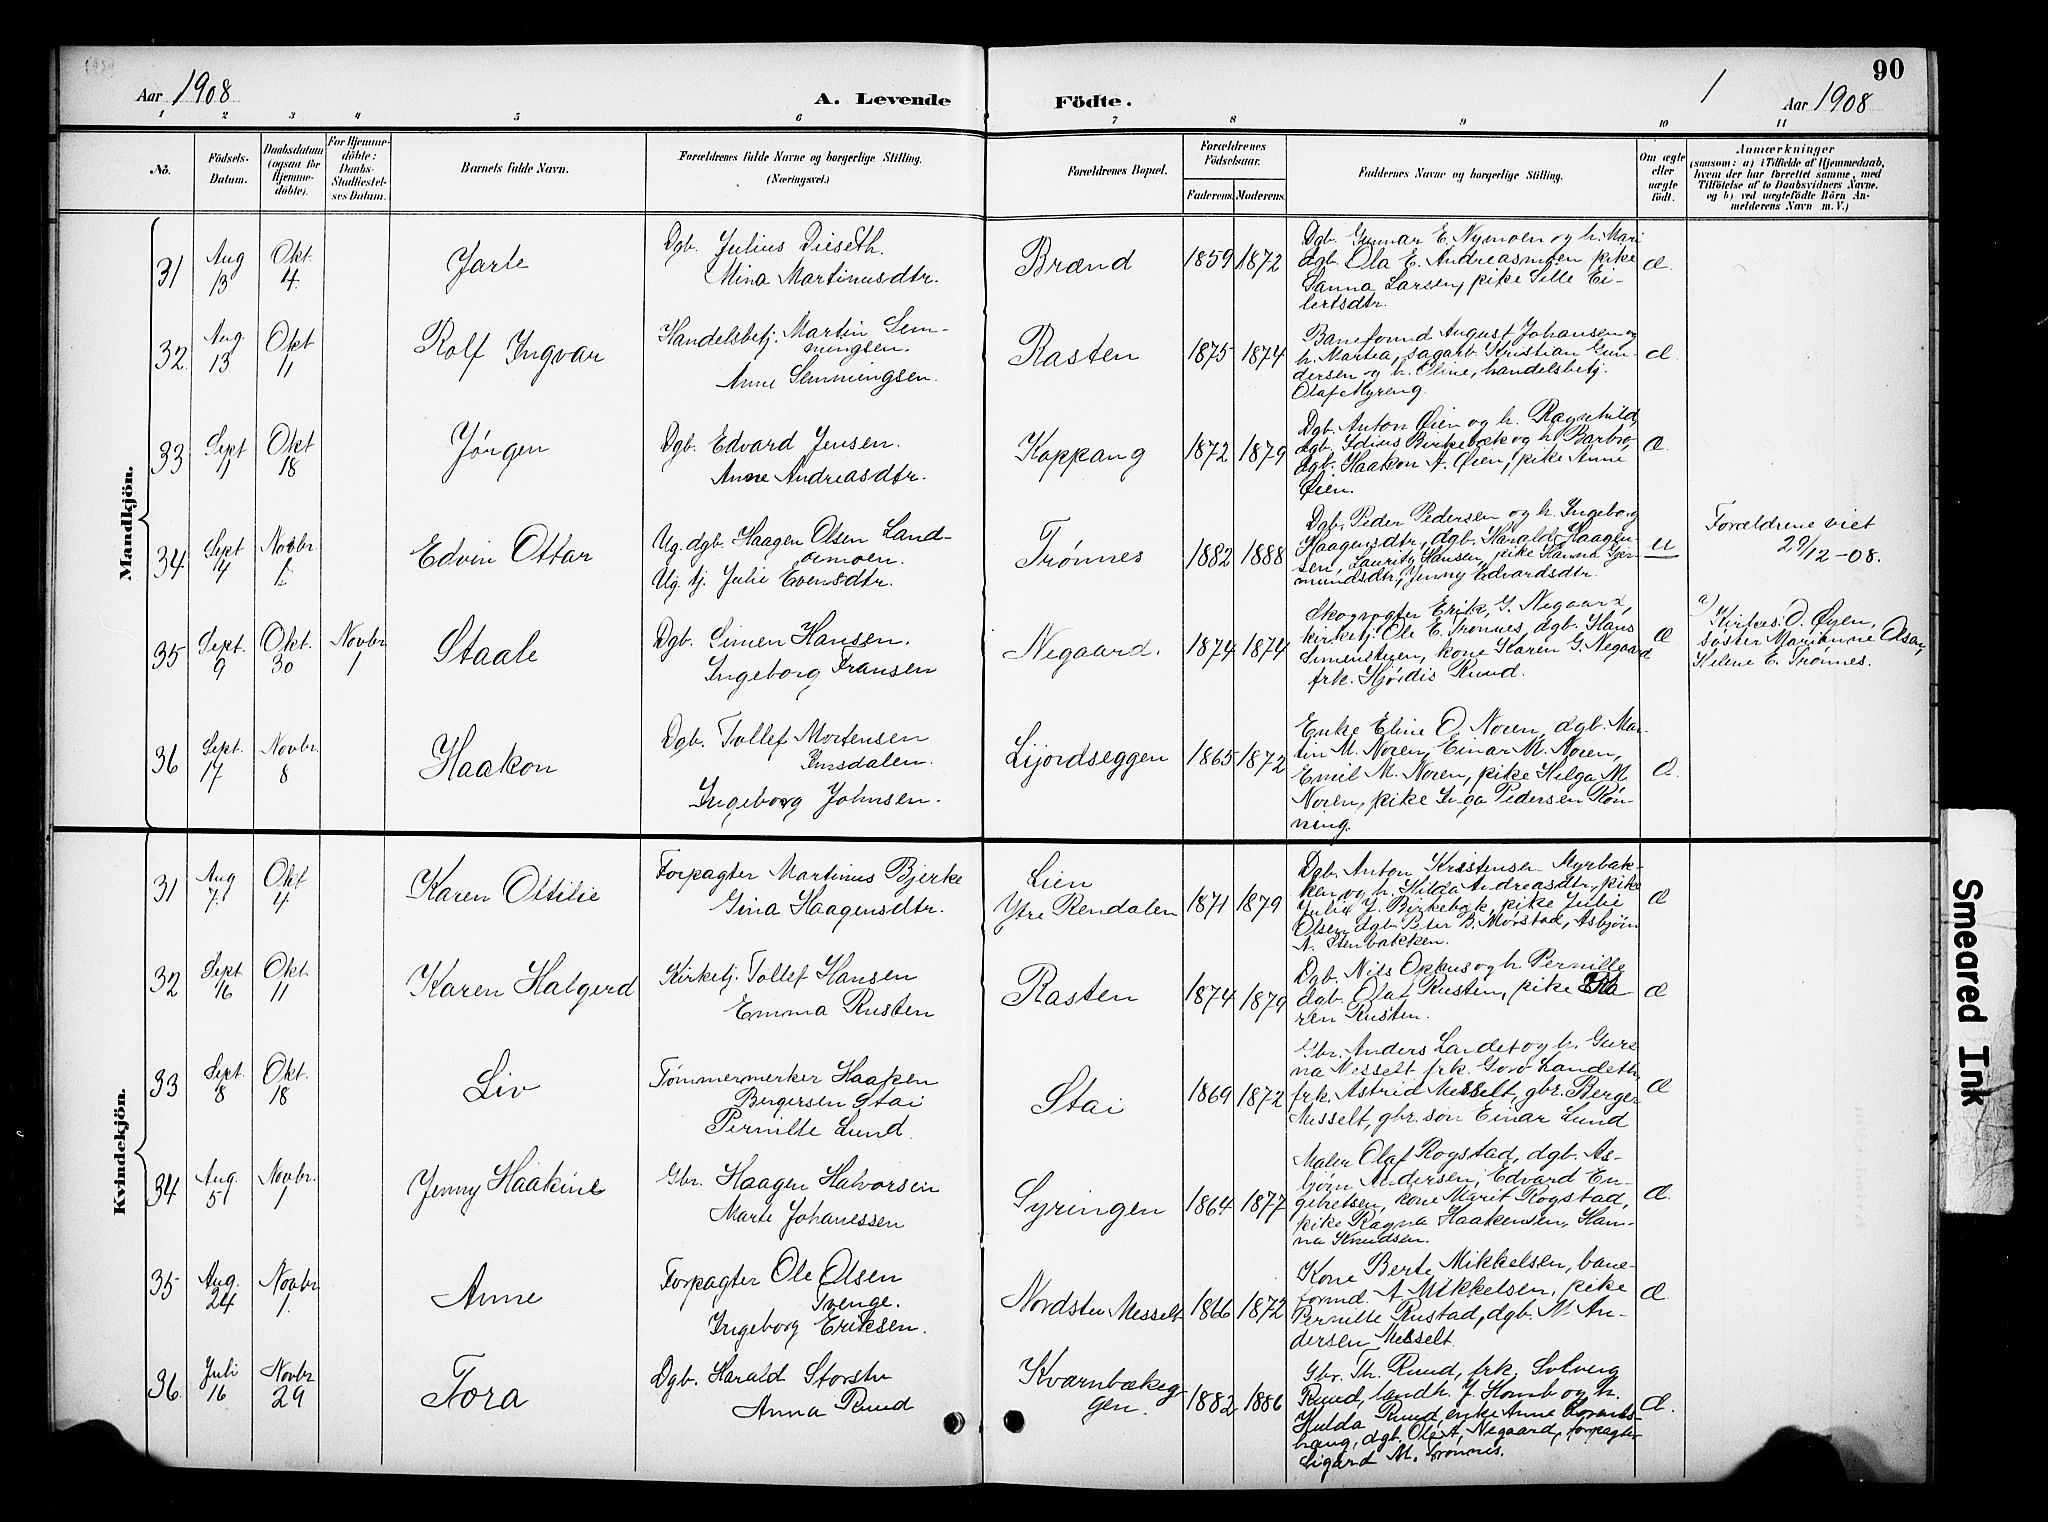 90
Aar 1908
A. Levende
Födte.
1
Aar 1908
1 2 3 4 5 6 7 8 9 10 11
No.
Födsels-
Datum.
Daabsdatum
(ogsaa for
Hjemme-
döbte).
For Hjemme-
döbte:
Daabs-
Stadfæstel-
ses Datum.
Barnets fulde Navn.
Forældrenes fulde Navne og borgerlige Stilling.
(Næringsvei.)
Forældrenes Bopæl.
Forældrenes
Födselsaar.
Faderens. Moderens.
Faddernes Navne og borgerlige Stilling.
Om ægte
eller
uægte
födt.
Anmærkninger
(saasom: a) i Tilfælde af Hjemmedaab,
hvem der har forrettet samme, med
Tilföielse af to Daabsvidners Navne.
og b) ved uægtefödte Börn An-
melderens Navn m. V.)
Mandkjön.
31
Aug
13
Okt.
4.
Jarle
Dgb. Julius Dieseth.
Mina Martinusdtr.
Brænd
1859 1872
Dgb. Gunnar E. Nymoen og h. Mari
dgb. Ola E. Andreasmoen, pike
Sanna Larsen, pike Sille Ei-
lertsdtr.
Æ.
32
Aug.
13
Okt
11
Rolf Ingvar
Handelsbetj. Martin Sem-
mingsen.
Anne Semmingsen.
Rasten
1875 1874
Baneformd August Johansen og
h. Martea, sagarb. Kristian Gun-
dersen og h. Oline, handelsbetj.
Olaf Myreng
Æ
33
Sept
1
Okt
18
Jørgen
Dgb. Edvard Jensen.
Anne Andreasdtr.
Koppang
1872 1879
Dgb. Anton Øien og h. Ragnhild,
dgb. Idius Birkebæk og h. Barbro,
dgb. Haakon A. Øien, pike Anne
Øien.
Æ.
34
Sept
4
Novbr
1.
Edvin Ottar
Ug. dgb. Haagen Olsen Land-
oemoen.
Ug. tj. Julie Evensdtr.
Trønnes
1882 1888
Dgb. Peder Pedersen og h. Ingeborg
Haagensdtr, dgb. Harald Haagen-
sen, Lauritz Hansen, pike Hanna Gjer-
mundsdtr, Jenny Edvardsdtr.
U
Forældrene viet
29/12-08.
35
Sept.
9
Okt.
30
Novbr
1
Staale
Dgb. Simen Hansen.
Ingeborg Fransen
Negaard.
1874 1874
Skogvogter Erik G. Negaard,
kirketj. Ole E. Trønnes, dgb. Hans
Simenstuen, kone Karen G. Negaard
frk. Hjørdis Ruud.
Æ
a)
Kirkes. O. Øyen,
søster Marianne Olsen,
Helene E. Trønnes.
36
Sept.
17
Novbr.
8
Haakon
Dgb. Tollef Mortensen
Ingeborg Johnsen.
Lijordseggen
1865 1872
Enke Eline O. Noren, dgb. Mar-
tin M. Noren, Einar M. Noren,
Emil M. Noren, pike Helga M.
Noren, pike Inga Pedersen Røn-
ning.
Æ.
Kvindekjön.
31
Aug
7.
Okt
4
Karen Ottilie
Forpagter Martinus Bjerke
Gina Haagensdtr.
Lien
Ytre Rendalen
1871 1879
Dgb. Anton Kristensen Myrbak-
ken og h. Hilda Andreasdtr., pike
Julie J. Birkebæk, pike Julie
Olsen, dgb. Peter B. Mørstad, Asbjørn
A. Stenbakken.
Æ
32
Sept
16
Okt.
11
Karen Halgerd
Kirketj. Tollef Hansen
Emma Rusten
Rasten
1874 1879
Dgb. Nils Ophus og h. Pernille
dgb. Olaf Rusten, pike Ka-
ren Rusten.
Æ
33
Sept.
8
Okt.
18
Liv
Tømmermerker Haaken
Bergersen Stai
Pernille Lund.
Stai
1869 1872
Gbr. Anders Landet og h. Guri-
na Messelt frk. Goro Landeth,
frk. Astrid Messelt, gbr. Berger
Messelt, gbr. søn Einar Lund
Æ
34
Aug.
5
Novbr.
1
Jenny Haakine
Gbr. Haagen Halvorsen
Marte Johanessen
Syringen
1864 1877
Maler Olaf Rogstad, dgb. As-
bjørn Andersen, Edvard En-
gebretsen, kone Marit Rogstad,
pike Ragna Haakensen, Han-
na Knudsen.
Æ
35
Aug.
24
Novbr
1.
Anne
Forpagter Ole Olsen
Trenge.
Ingeborg Eriksen.
Nordstu Messelt
1866 1872
Kone Berte Mikkelsen, bane-
formd. A Mikkelsen, pike
Pernille Rustad, dgb. M. An-
dersen Messelt
Æ.
36
Juli
16
Novbr
29
Tora
Dgb. Harald Storstu
Anna Ruud
Kvarnbækeg-
gen.
1882 1886
Gbr. Th. Ruud, frk. Solveig
Ruud, landh. J. Homb og h.
Hulda Ruud, enke Anne
haug, dgb. Ole A. Negaard, forpagter
Sigard M. Trønnes.
Æ.
Smeared Ink